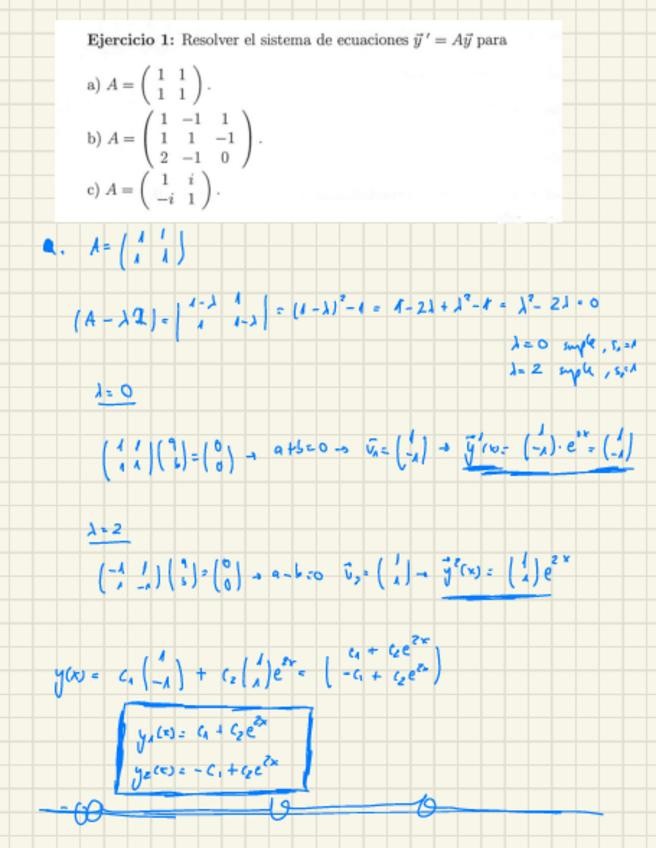 Ejercicio 1: Resolver el sistema de ecuaciones y⃗ ′ = Ay⃗ para
a) A = ( 1 1 ; 1 1 ) .
b) A = ( 1 −1 1 ; 1 1 −1 ; 2 −1 0 ) .
c) A = ( 1 i ; −i 1 ) .
a. A = ( 1 1 ; 1 1 )
(A − λI) = | 1−λ 1 ; 1 1−λ | = (1−λ)² − 1 = 1 − 2λ + λ² − 1 = λ² − 2λ = 0
λ = 0 simple,
λ = 2 simple,
λ = 0
( 1 1 ; 1 1 )( a ; b ) = ( 0 ; 0 ) → a+b=0 → v⃗₁ = ( 1 ; −1 ) → y⃗¹(x) = ( 1 ; −1 ) · e⁰ˣ = ( 1 ; −1 )
λ = 2
( −1 1 ; 1 −1 )( a ; b ) = ( 0 ; 0 ) → a−b=0 v⃗₂ = ( 1 ; 1 ) → y⃗²(x) = ( 1 ; 1 ) e²ˣ
y(x) = c₁ ( 1 ; −1 ) + c₂ ( 1 ; 1 ) e²ˣ = ( c₁ + c₂e²ˣ ; −c₁ + c₂e²ˣ )
y₁(x) = c₁ + c₂e²ˣ
y₂(x) = −c₁ + c₂e²ˣ